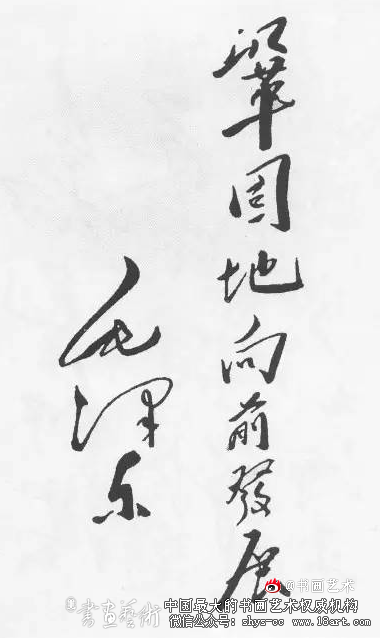 鞏固地向前發展
毛澤东
@书画艺术
書画藝術
中国最大的书画艺术权威机构
微信公众号：shys-cc www.18art.com